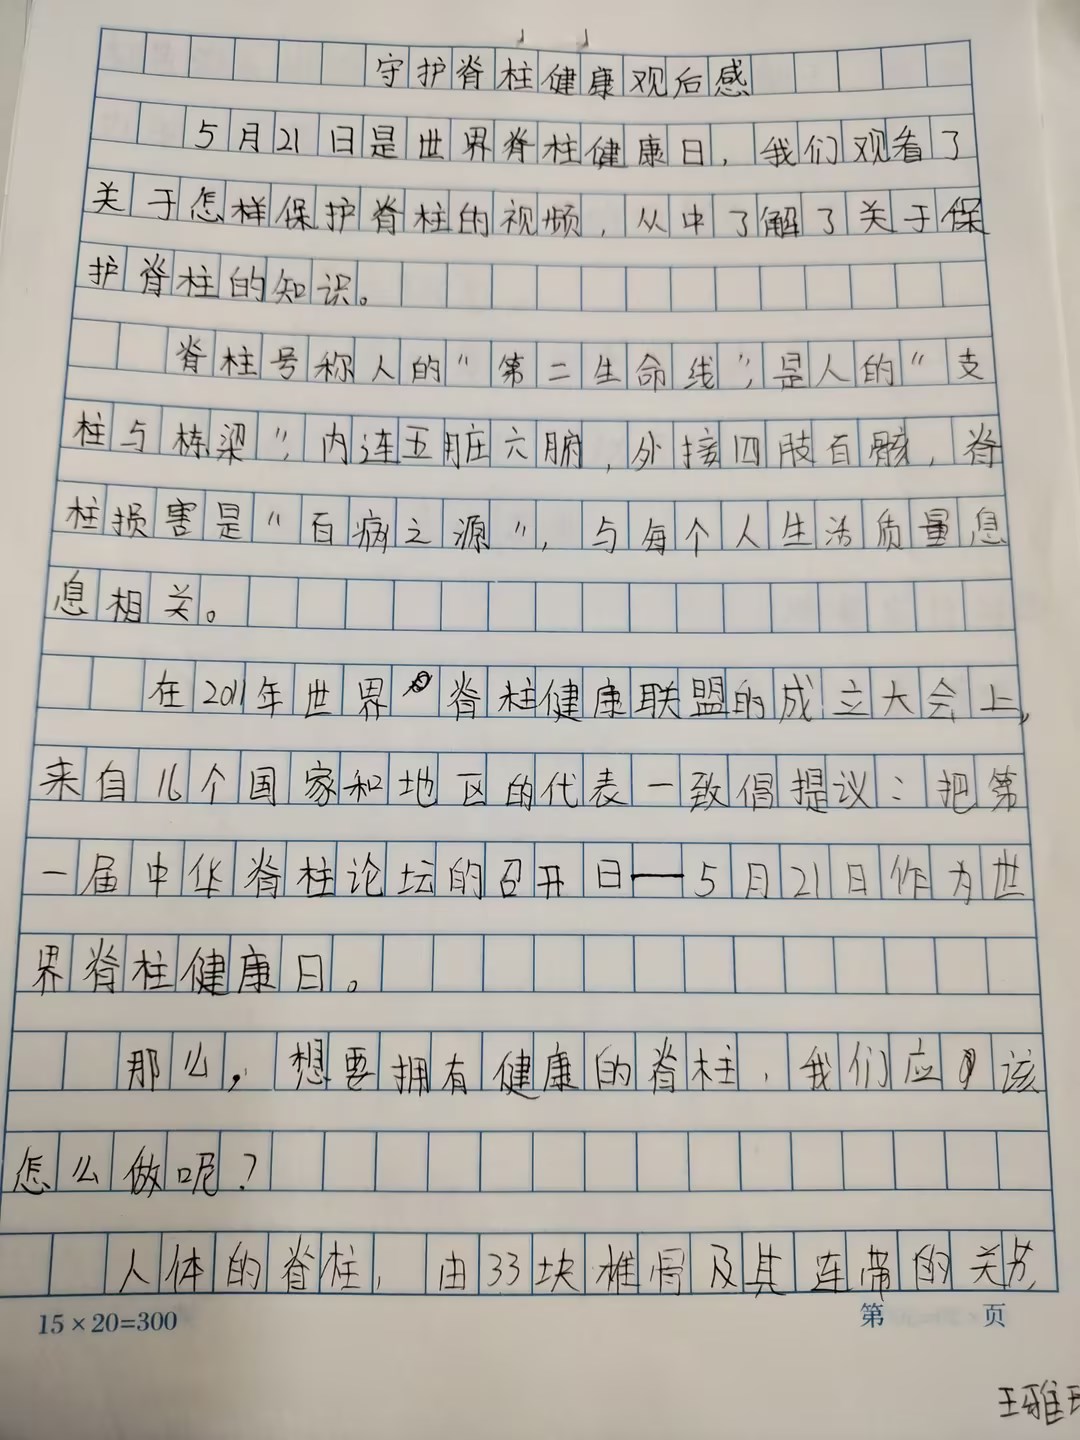 守护脊柱健康观后感
5月21日是世界脊柱健康日，我们观看了
关于怎样保护脊柱的视频，从中了解了关于保
护脊柱的知识。
脊柱号称人的“第二生命线”，是人的“支
柱与栋梁”，内连五脏六腑，外接四肢百骸，脊
柱损害是“百病之源”，与每个人生活质量息
息相关。
在2011年世界脊柱健康联盟的成立大会上，
来自儿个国家和地区的代表一致倡提议：把第
一届中华脊柱论坛的召开日—5月21日作为世
界脊柱健康日。
那么，想要拥有健康的脊柱，我们应该
怎么做呢？
人体的脊柱，由33块椎骨及其连带的关节，
15×20=300 第 页
王雅